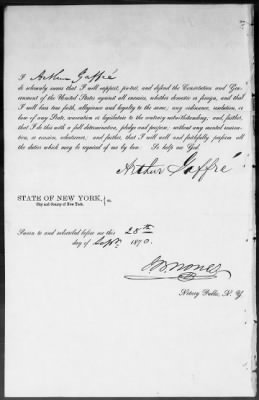 I Arthur Gaffré
do solemnly swear that I will support, protect, and defend the Constitution and Gov-
ernment of the United States against all enemies, whether domestic or foreign, and that
I will bear true faith, allegiance and loyalty to the same, any ordinance, resolution, or
law of any State, convention or legislature to the contrary notwithstanding; and further,
that I do this with a full determination, pledge and purpose, without any mental reserva-
tion, or evasion, whatsoever; and further, that I will well and faithfully perform all
the duties which may be required of me by law. So help me God.
Arthur Gaffré
STATE OF NEW YORK, } ss.
City and County of New York.
Sworn to and subscribed before me this 28th
day of Sept. 1870.
Notary Public, N. Y.